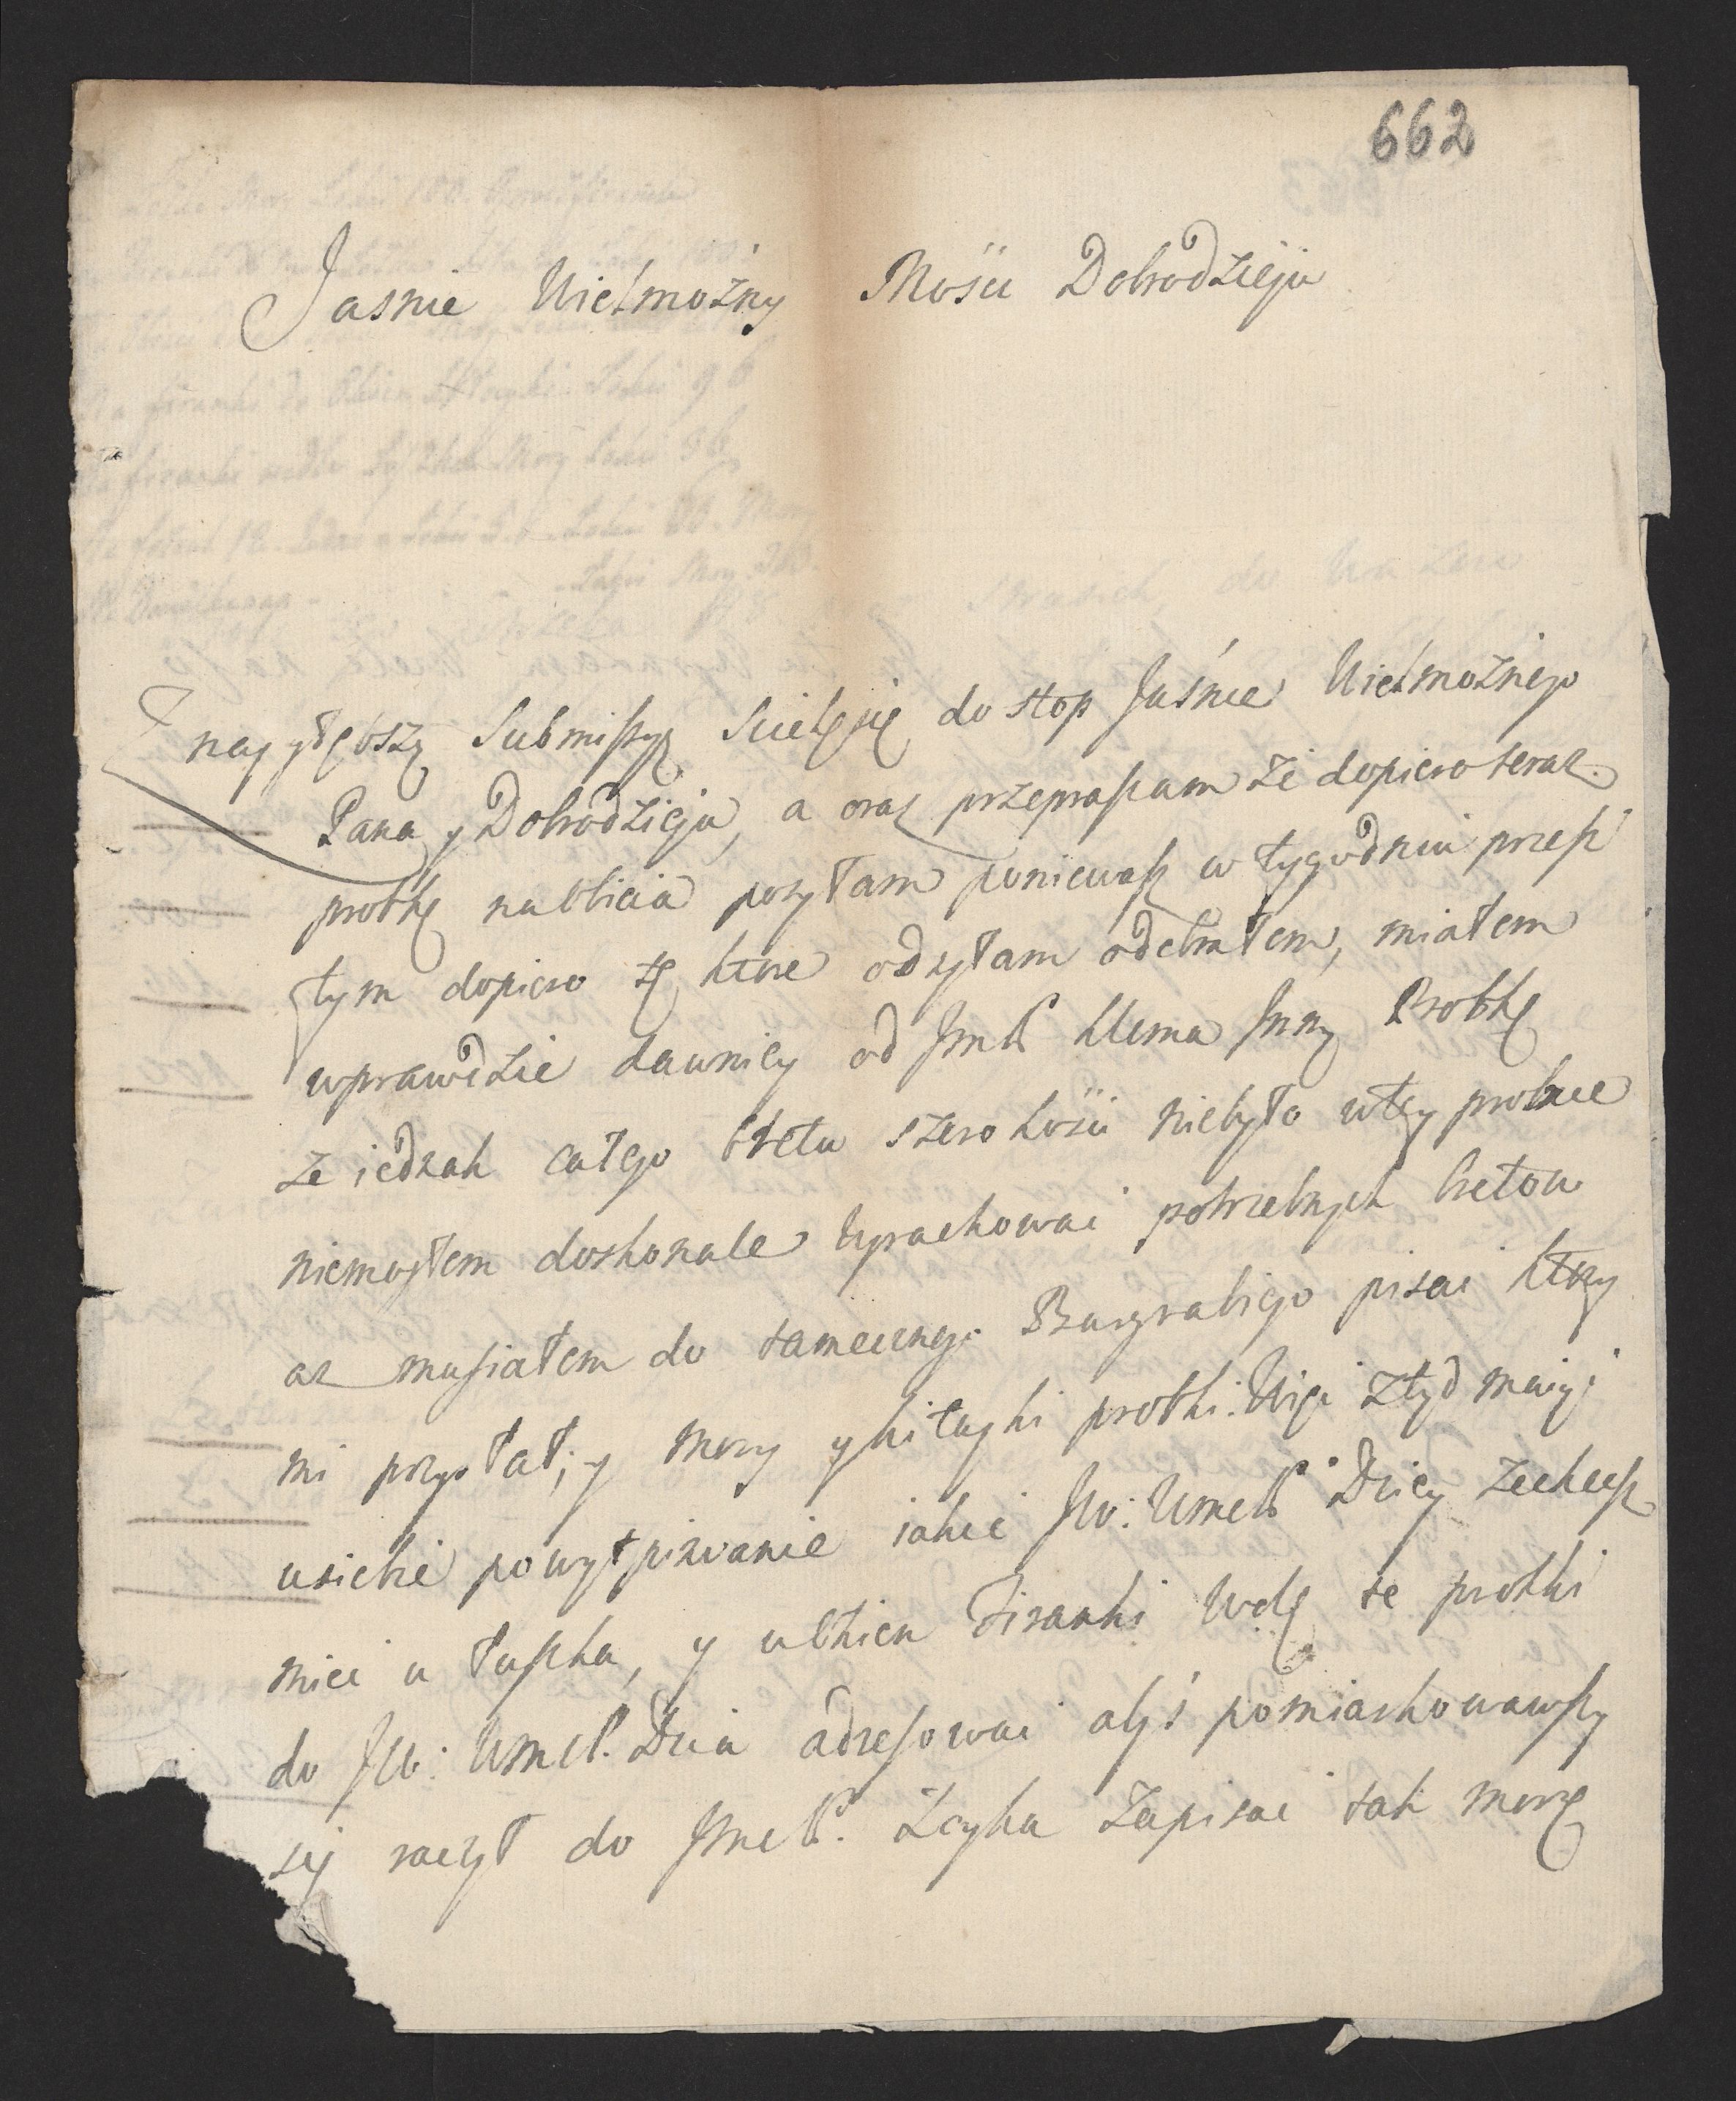 662
Jasnie Wielmożny Mości Dobrodzieju
Z naygłębszą Submissyą Scielę się do stop Jaśnie Wielmożnego
Pana y Dobrodzieja, a oraz przepraszam że dopiero teraz
probkę na obicia posyłam poniewasz w tygodniu przesz
łym dopiero tę ktore odsyłam odebrałem, miałem
wprawdzie dawniey od Jmć Klema Inną Probkę
że iednak całego bretu szerokości niebyło w tey probce
niemogłem doskonale wyrachować potrzebnych bretow
az musiałem do tamecznego Burgrabiego pisać ktory
mi przysłał, y mory y kitayki probki. Więc ztąd maiąc
u siebie powątpiwanie iakie JW: WmcP Dziey zechcesz
mieć u łuszka, y u okien Firanki te probki
do JW: WmcP. Dzia adresować abyś pomiarkowawszy
się raczył do JmcP. Zeyha Zapisać tak morę